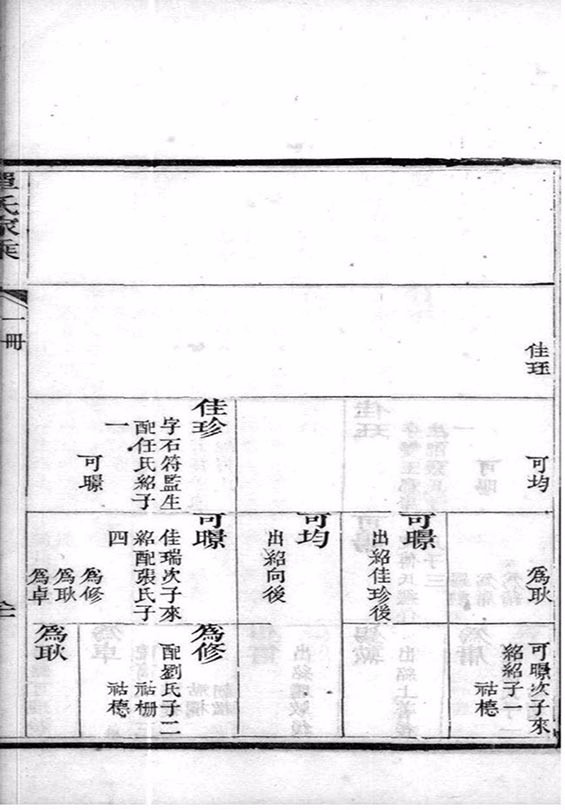 佳珏
可均
佳珍
字石符監生
配任氏紹子
一
可暻
爲耿
可暻
出紹佳珍後
可均
出紹向後
可暻
佳瑞次子來
紹配張氏子
四
爲修
爲耿
爲卓
可暻次子來
紹紹子一
祜橞
爲修
配劉氏子二
祜柵
祜橞
爲耿
單氏家乘
一冊